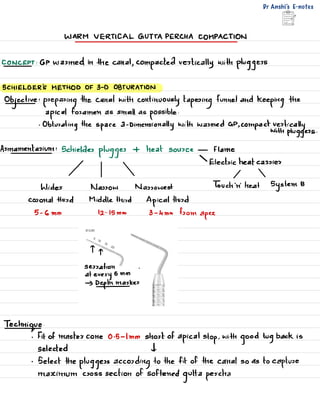 Dr Anshi's E-notes
WARM VERTICAL GUTTA PERCHA COMPACTION
CONCEPT: GP warmed in the canal, compacted vertically with pluggers
SCHIELDER'S METHOD OF 3-D OBTURATION
Objective: preparing the canal with continuously tapering funnel and keeping the
apical foramen as small as possible.
· Obturating the space 3-Dimensionally with warmed GP, compact vertically
with pluggers.
Armamentarium: Schielder plugger + heat source — Flame
Electric heat carrier
Wider Narrow Narrowest Touch'n' heat System B
coronal third Middle third Apical third
5-6 mm 12-15 mm 3-4 mm from apex
serration
at every 5 mm
→ Depth marker
Technique
· Fit of master cone 0.5-1mm short of apical stop, with good tug back is
selected
· Select the pluggers according to the fit of the canal so as to capture
maximum cross section of softened gutta percha